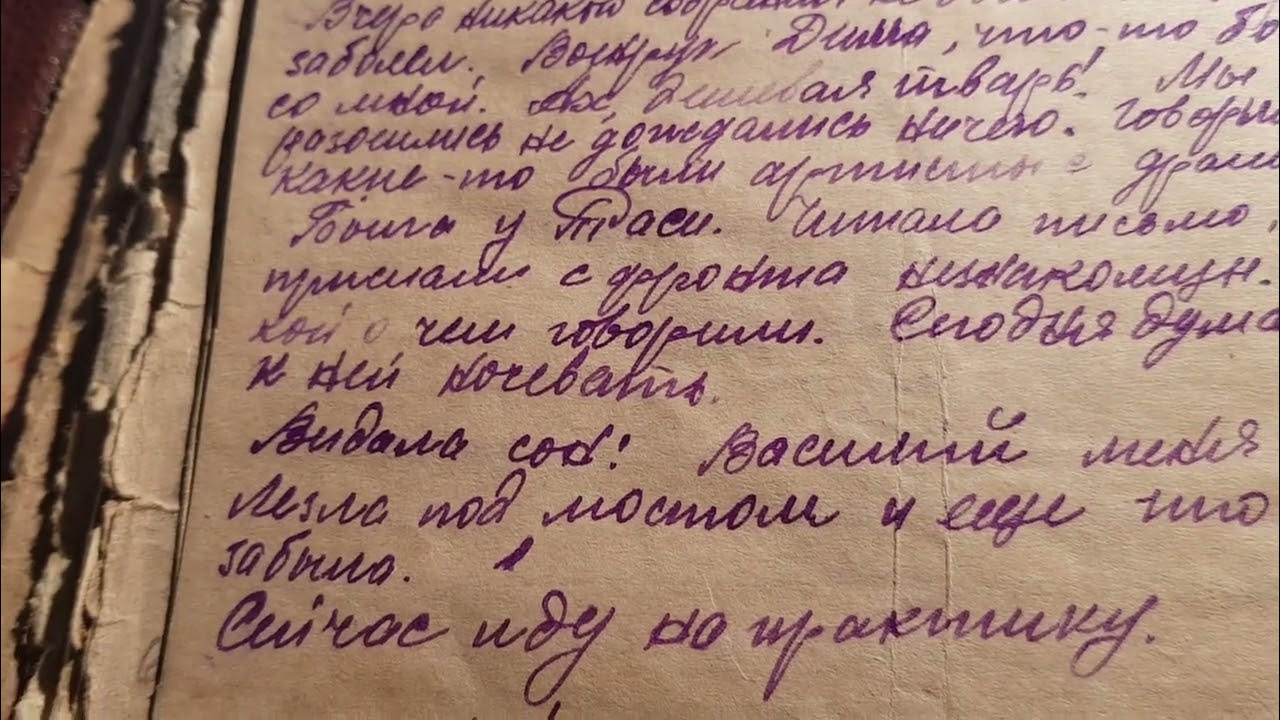 Вчера никакой
заболел. Вокруг Дима, что-то бо
со мной. Ах, дешевая тварь! Мы
разошлись не дождались ничего. Говоры
какие-то были артисты с драм
Была у Таси. Читала письмо,
прислали с фронта незнакомцы.
кой о чем говорили. Сегодня дума
к ней ночевать.
Видала сон! Василий меня
лезла под мостом и еще что
забыла.
Сейчас иду на практику.